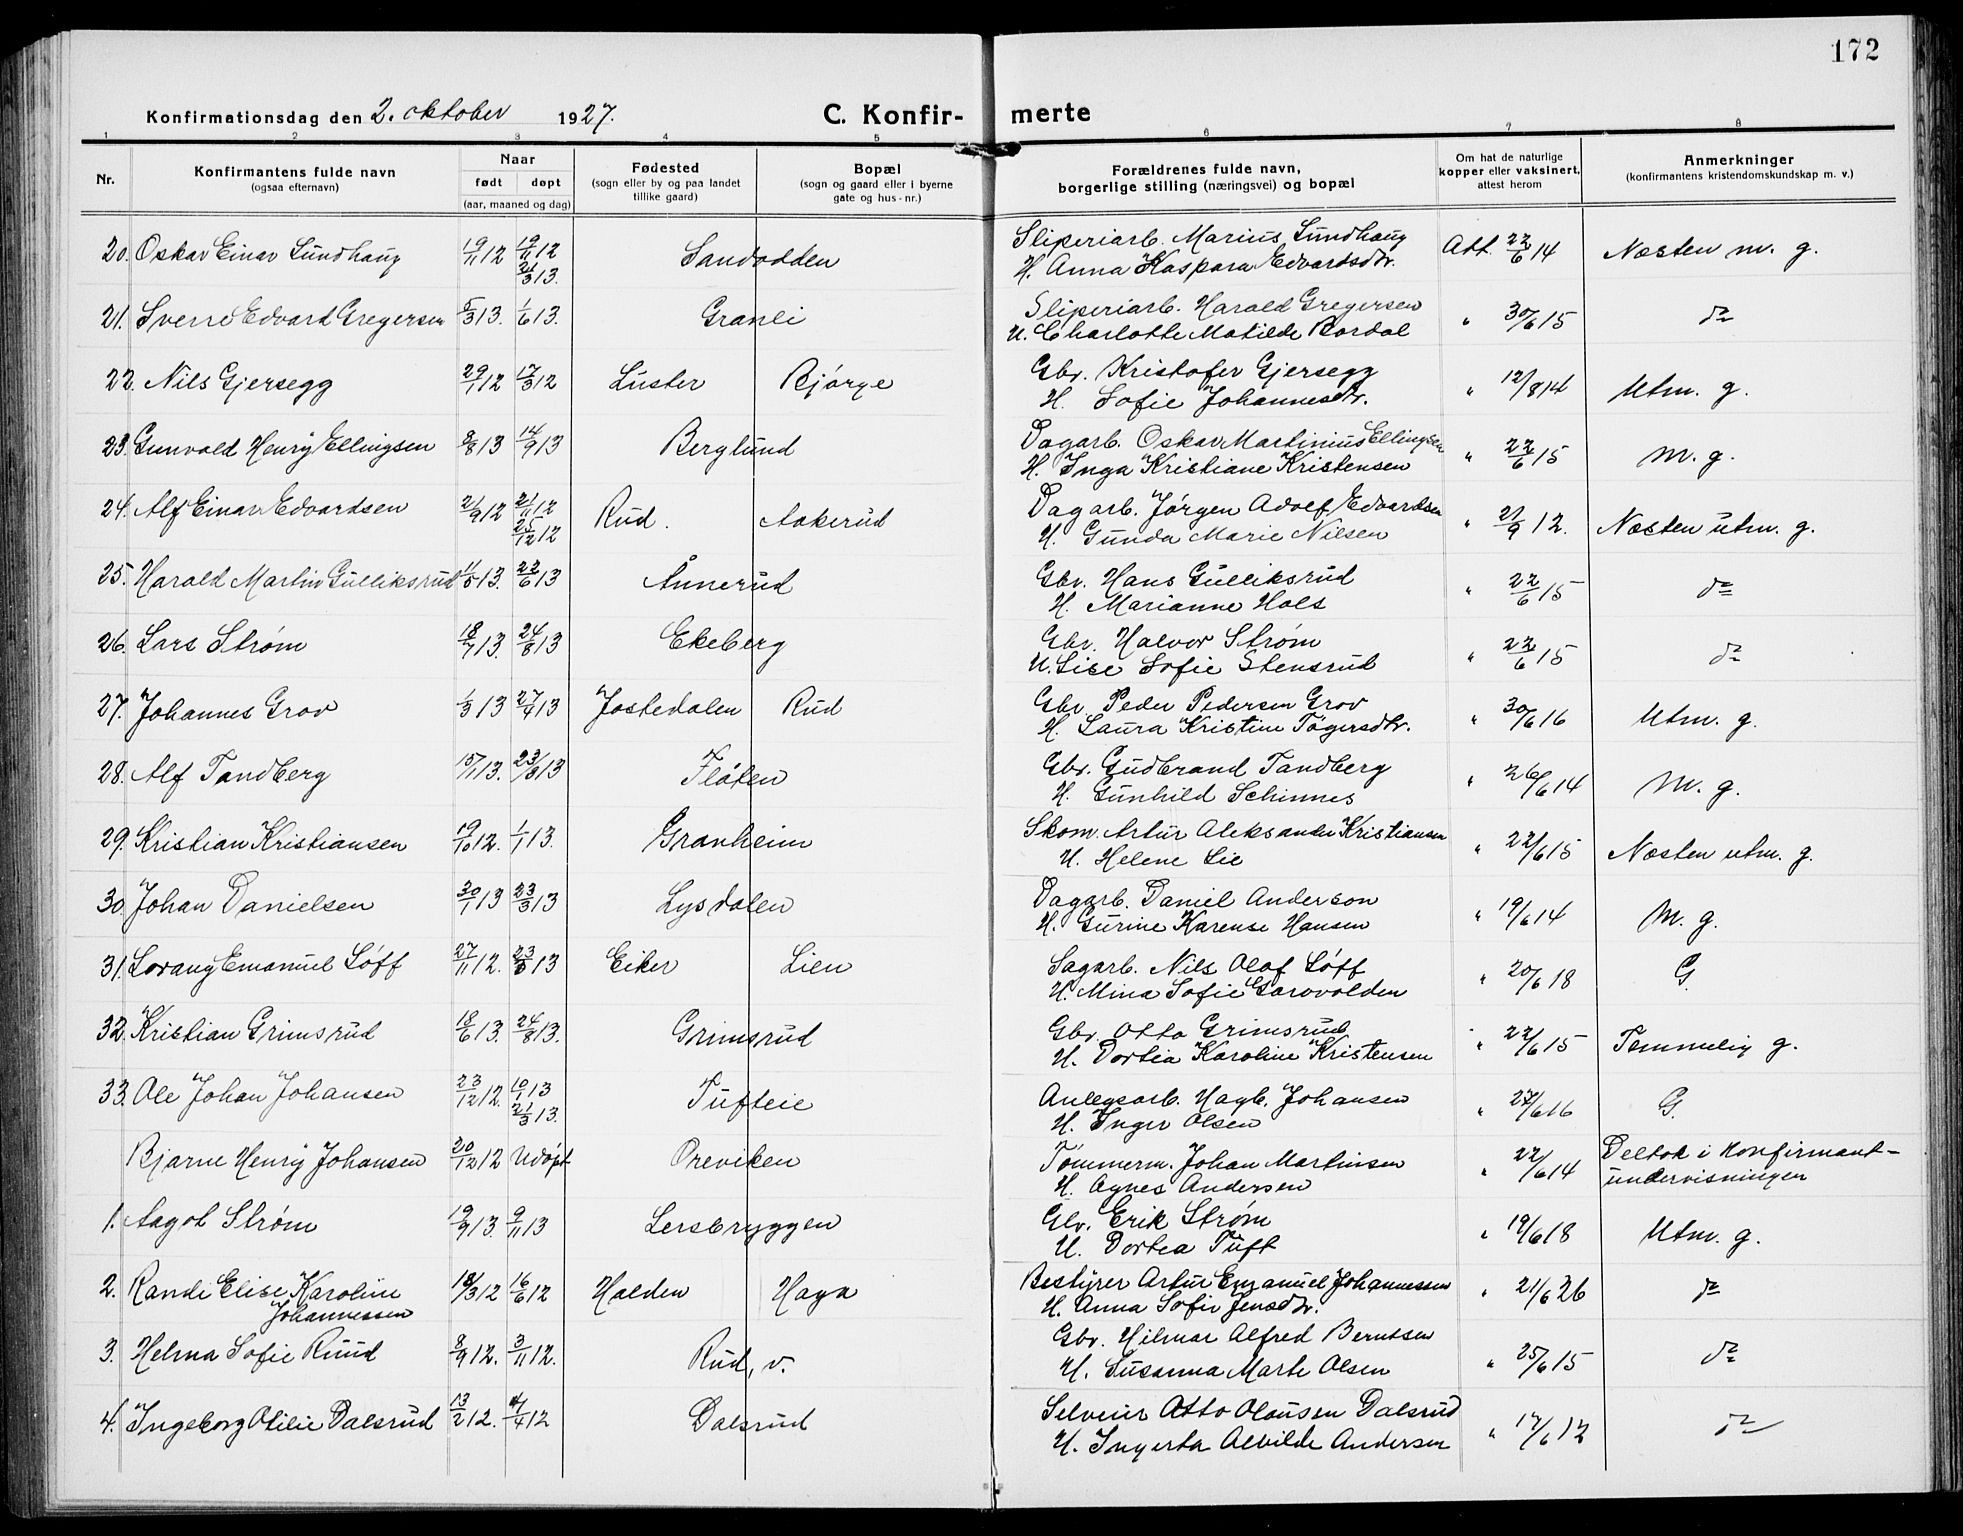 172
Konfirmationsdag den 2. oktober 1927.
C. Konfir-merte
1 2 3 4 5 6 7 8
Nr.
Konfirmantens fulde navn
(ogsaa efternavn)
Naar
født døpt
(aar, maaned og dag)
Fødested
(sogn eller by og paa landet
tillike gaard)
Bopæl
(sogn og gaard eller i byerne
gate og hus-nr.)
Forældrenes fulde navn,
borgerlige stilling (næringsvei) og bopæl
Om hat de naturlige
kopper eller vaksinert,
attest herom
Anmerkninger
(konfirmantens kristendomskundskap m. v.)
20. Oskar Einar Sundhaug 19/11 12 19/11 12 Sandodden Sliperiarb. Marius Sundhaug Att. 22/6 14 Næsten m. g.
24/3 13. H. Anna Kaspara Edvardsdtr.
21. Sverre Edvard Gregersen 5/3 13. 1/6 13. Granli Sliperiarb. Harald Gregersen " 30/6 15 do
H. Charlotte Matilde Bordal
22. Nils Gjersegg 29/1 12 17/3 12 Luster Bjørge Gbr. Kristofer Gjersegg " 12/8 14 Utm. g.
H. Sofie Johannesdtr.
23. Gunvald Henry Ellingsen 8/8 13 14/9 13 Berglund Dagarb. Oskar Martinius Ellingsen " 22/6 15 M. g.
H. Inga Kristiane Kristensen
24. Alf Einar Edvardsen 21/9 12 21/11 12 Rud. Aakerud Dagarb. Jørgen Adolf Edvardsen " 21/9 12. Næsten utm. g.
25/12 12 H. Gunda Marie Nilsen
25. Harald Martin Gulliksrud 11/5 13. 22/6 13 Ånnerud Gbr. Hans Gulliksrud " 22/6 15 do
H. Marianne Hols
26. Lars Strøm 18/7 13. 24/8 13 Ekeberg Gbr. Halvor Strøm " 22/6 15 do
H. Lise Sofie Stensrud
27. Johannes Grov 1/3 13 27/4 13 Jostedalen Rud Gbr. Peder Pedersen Grov " 30/6 16 Utm. g.
H. Laura Kristine Tøgersdtr.
28. Alf Tandberg 15/1 13. 23/3 13 Fløten Gbr. Gudbrand Tandberg " 26/6 14 M. g.
H. Gunhild Schinnes
29. Kristian Kristiansen 19/10 12. 1/1 13. Granheim Skom. Artur Aleksander Kristiansen " 22/6 15 Næsten utm. g.
H. Helene Lie
30. Johan Danielsen 30/1 13 23/3 13 Lysdalen Dagarb. Daniel Anderson " 19/6 14 M. g.
H. Gurine Karense Hansen
31. Lorang Emanuel Løff 27/11 12. 23/3 13 Eiker Lien Sagarb. Nils Olaf Løff " 20/6 18 G.
H. Mina Sofie Garvolden
32. Kristian Grimsrud 18/6 13. 24/8 13. Grimsrud Gbr. Otto Grimsrud " 22/6 15 Temmelig g.
H. Dortea Karoline Kristensen
33. Ole Johan Johansen 23/12 12. 10/1 13 Tufteie Anlegsarb. Hagb. Johansen " 27/6 16 G.
21/3 13. H. Inger Olsen
Bjarne Henry Johansen 20/12 12 Udøpt Oreviken Tømmerm. Johan Martinsen " 22/6 14 Deltok i konfirmant-
H. Agnes Andersen undervisningen
1. Aagot Strøm 19/9 13. 9/11 13 Lersbryggen Gbr. Erik Strøm " 19/6 18 Utm. g.
H. Dortea Tuft
2. Randi Elise Karoline 18/3 12 16/6 12 Halden Haga Bestyrer Artur Emanuel Johannessen " 21/6 26 do
Johannessen H. Anna Sofie Jensdtr.
3. Helma Sofie Ruud 8/9 12. 3/11 12. Rud, v. Gbr. Hilmar Alfred Berntsen " 25/6 15 do
H. Susanna Marte Olsen
4. Ingeborg Otilie Dalsrud 13/2 12. 4/4 12 Dalsrud Selveier Otto Olausen Dalsrud " 17/6 12 do
H. Ingerta Alvilde Andersen